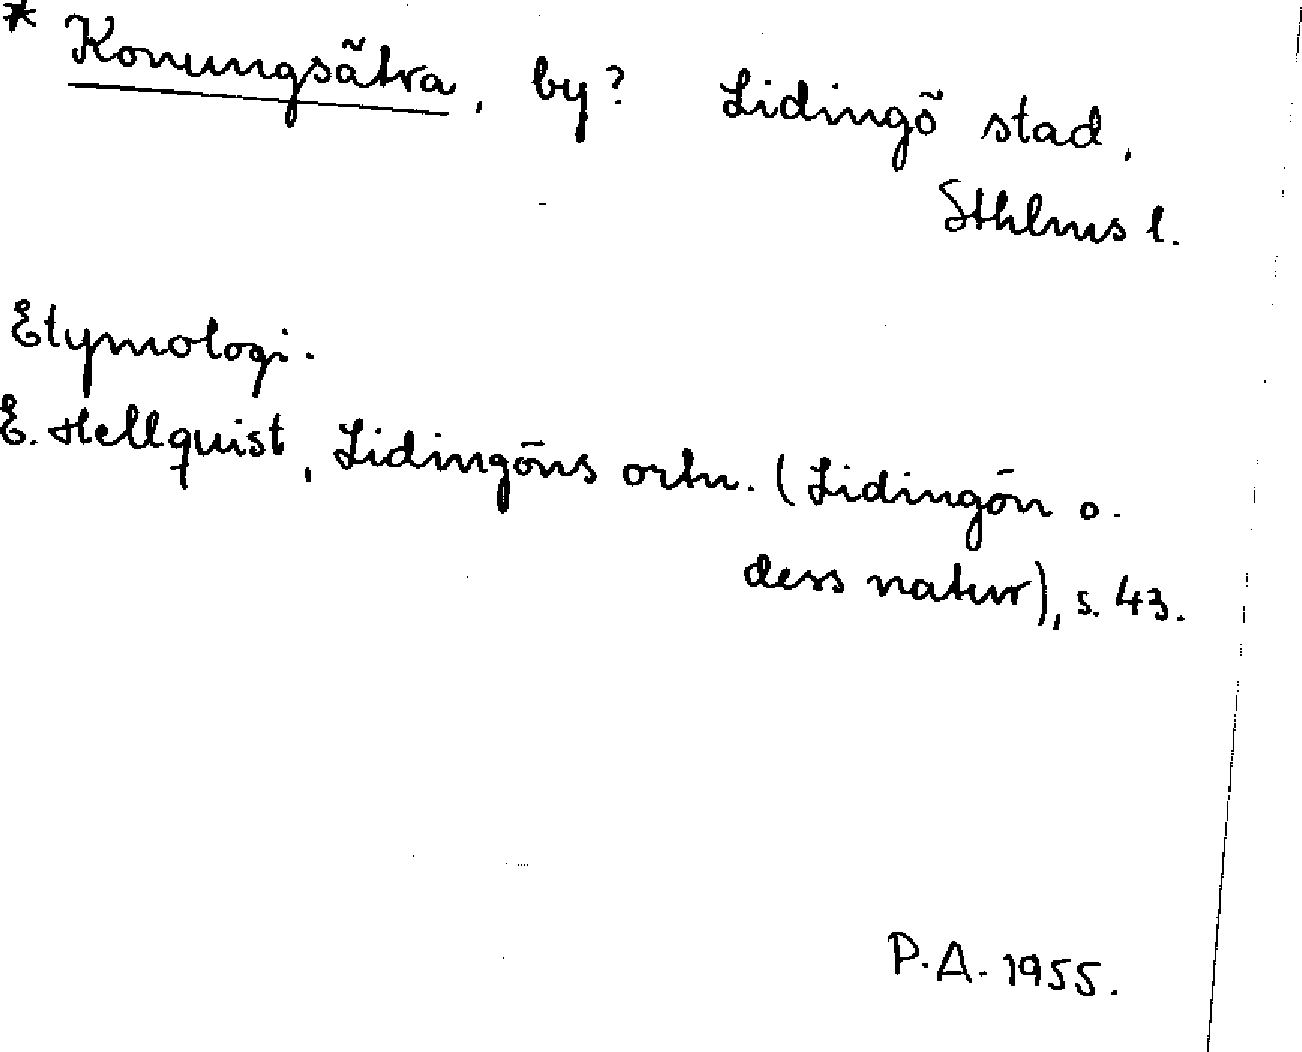 * Konungsätra, by? Lidingö stad,
Sthlms l.
Etymologi.
E. Hellquist, Lidingöns ortn. (Lidingön o.
dess natur), s. 43.
P.A. 1955.